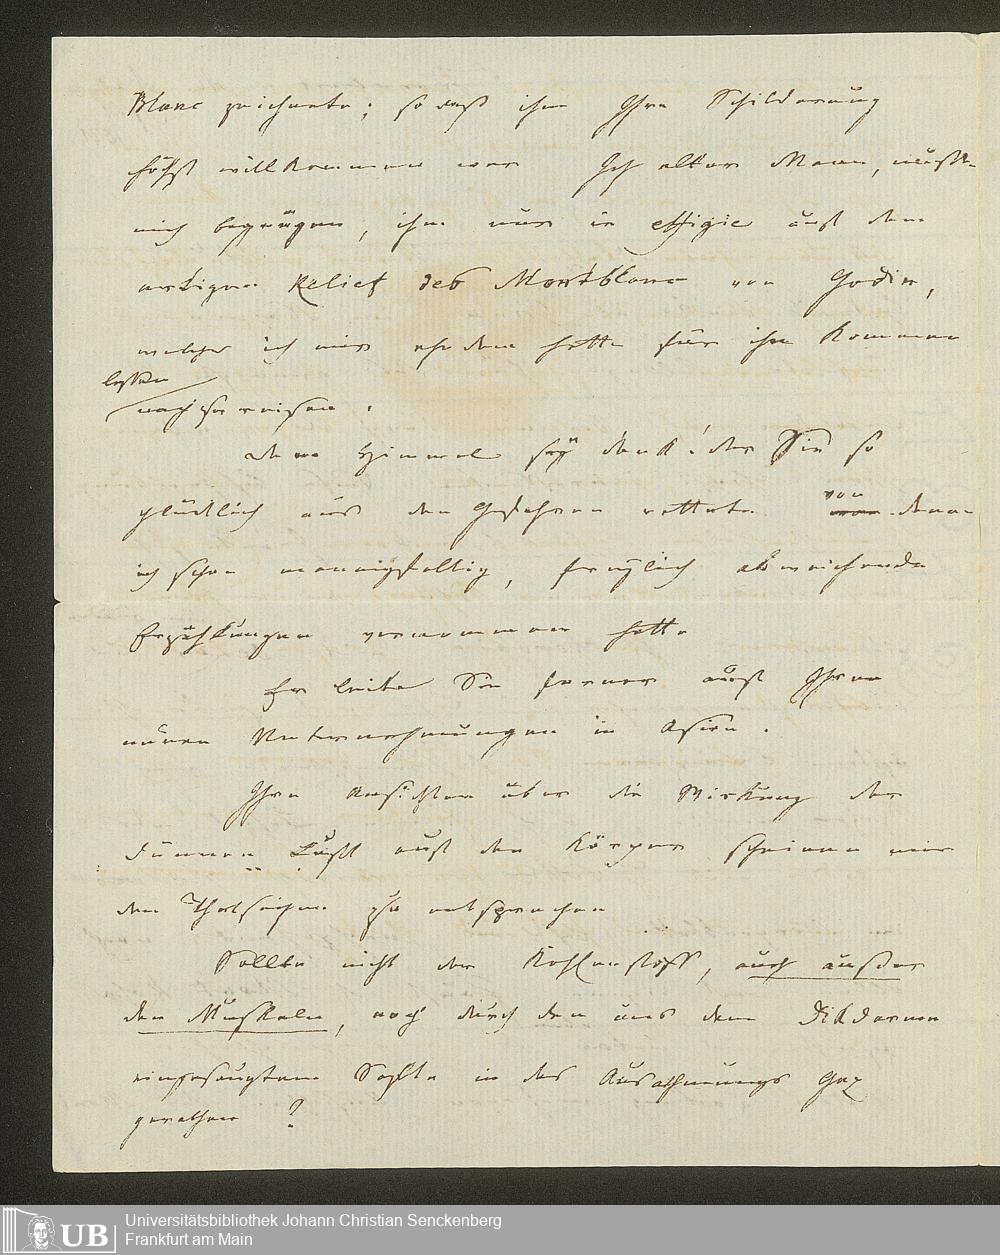 Blanc zeichnete; so daß ihm Ihre Schilderung
höchst willkommen war Ich alter Mann, müßte
mich begnügen, ihm nur in effigie auf dem
artigen Relief des Montblanc von Godin,
welches ich mir eh dem hatte für ihn kommen
lassen
nachzureisen.
Dem Himmel sey dank! der Sie so
glücklich aus den Gefahren rettete von denen
ich schon mannigfaltig, freylich abweichende
Erzählungen vernommen hatte
Er leite Sie ferner auf Ihren
neuen Unternehmungen in Asien.
Ihre Ansichten über die Wirkung der
dünnen Luft auf den Körper scheinen mir
den Thatsachen zu entsprechen
Sollte nicht der Kohlenstoff, auch außer
den Muskeln, noch durch den aus dem Dikdarme
eingesaugten Safte in das Ausathmungs Gaz
gerathen?
UB Universitätsbibliothek Johann Christian Senckenberg
Frankfurt am Main